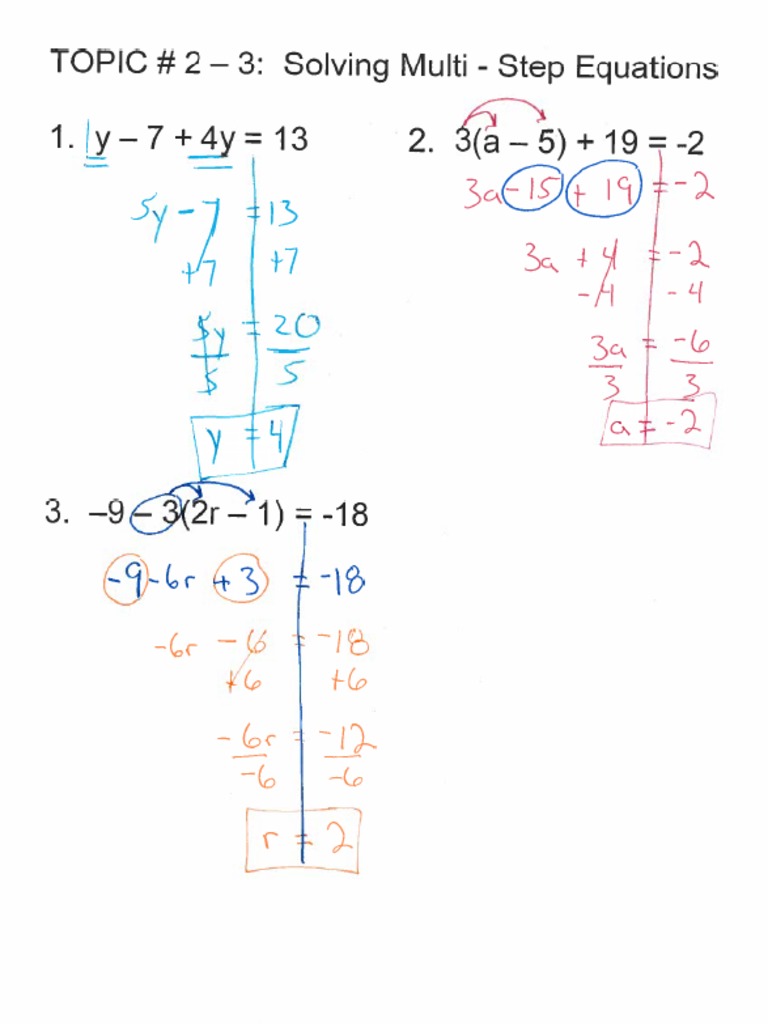 TOPIC # 2 – 3: Solving Multi - Step Equations
1. 1y – 7 + 4y = 13
5y - 7 = 13
+7 +7
5y = 20
5 5
y = 4
2. 3(a – 5) + 19 = -2
3a -15 + 19 = -2
3a + 4 = -2
-4 -4
3a = -6
3 3
a = -2
3. –9 – 3(2r – 1) = -18
-9 -6r +3 = -18
-6r - 6 = -18
+6 +6
-6r = -12
-6 -6
r = 2